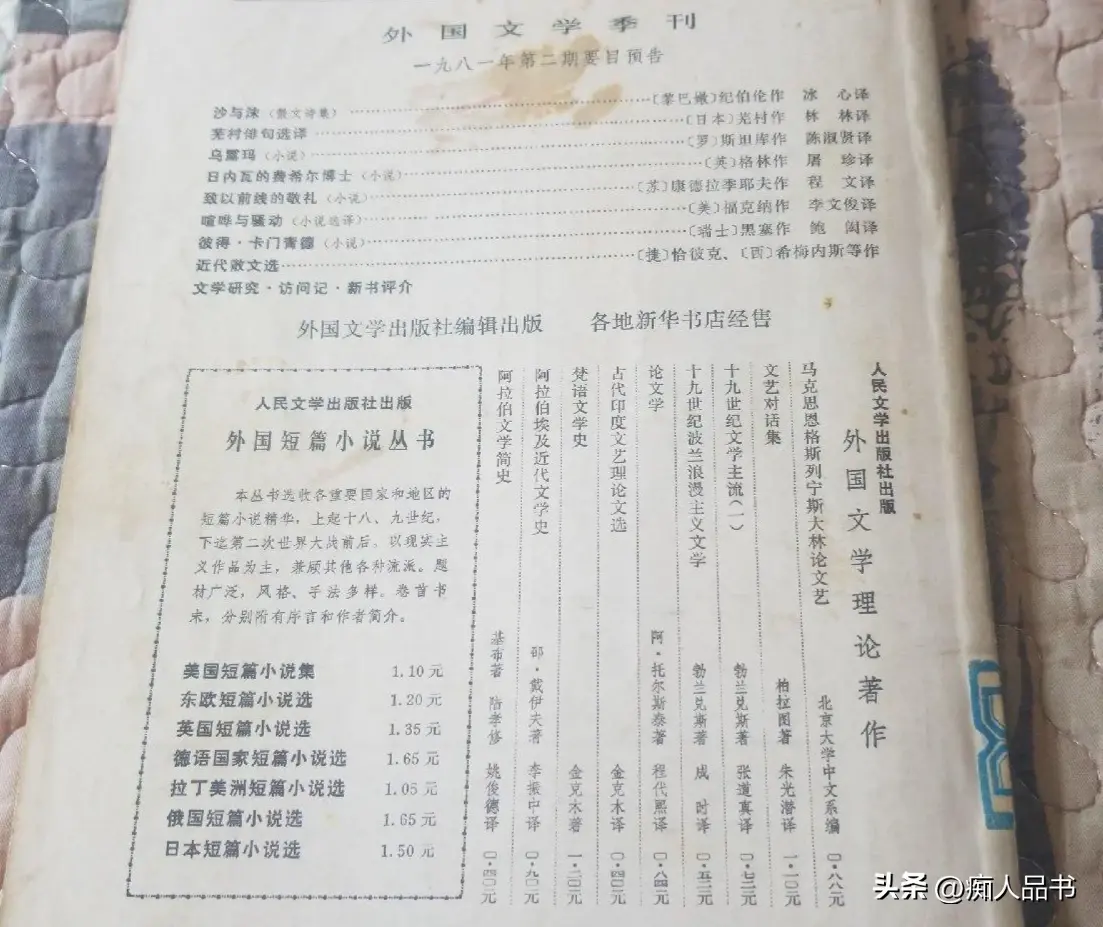 外国文学季刊
一九八一年第二期要目预告
沙与沫（散文诗集）……〔黎巴嫩〕纪伯伦作 冰 心译
芜村俳句选译……〔日本〕芜村作 林 林译
乌露玛（小说）……〔罗〕斯坦库作 陈淑贤译
日内瓦的费希尔博士（小说）……〔英〕格林作 屠 珍译
致以前线的敬礼（小说）……〔苏〕康德拉季耶夫作 程 文译
喧哗与骚动（小说选译）……〔美〕福克纳作 李文俊译
彼得·卡门青德（小说）……〔瑞士〕黑塞作 鲍 闳译
近代散文选……〔捷〕恰彼克、〔西〕希梅内斯等作
文学研究·访问记·新书评介
外国文学出版社编辑出版 各地新华书店经售
人民文学出版社出版
外国文学理论著作
马克思恩格斯列宁斯大林论文艺 北京大学中文系编 〇·八八元
文艺对话集 柏拉图著 朱光潜译 一·一〇元
十九世纪文学主流（一） 勃兰兑斯著 张道真译 〇·七二元
十九世纪波兰浪漫主义文学 勃兰兑斯著 成 时译 〇·五二元
论文学 阿·托尔斯泰著 程代熙译 〇·八四元
古代印度文艺理论文选 金克木译 〇·四二元
梵语文学史 金克木著 一·二〇元
阿拉伯埃及近代文学史 邵·戴伊夫著 李振中译 〇·九〇元
阿拉伯文学简史 基布著 陆孝修 姚俊德译 〇·四〇元
人民文学出版社出版
外国短篇小说丛书
本丛书选收各重要国家和地区的
短篇小说精华，上起十八、九世纪，
下迄第二次世界大战前后。以现实主
义作品为主，兼顾其他各种流派。题
材广泛，风格、手法多样。卷首书
末，分别附有序言和作者简介。
美国短篇小说集 1.10元
东欧短篇小说选 1.20元
英国短篇小说选 1.35元
德语国家短篇小说选 1.65元
拉丁美洲短篇小说选 1.05元
俄国短篇小说选 1.65元
日本短篇小说选 1.50元
头条 @痴人品书